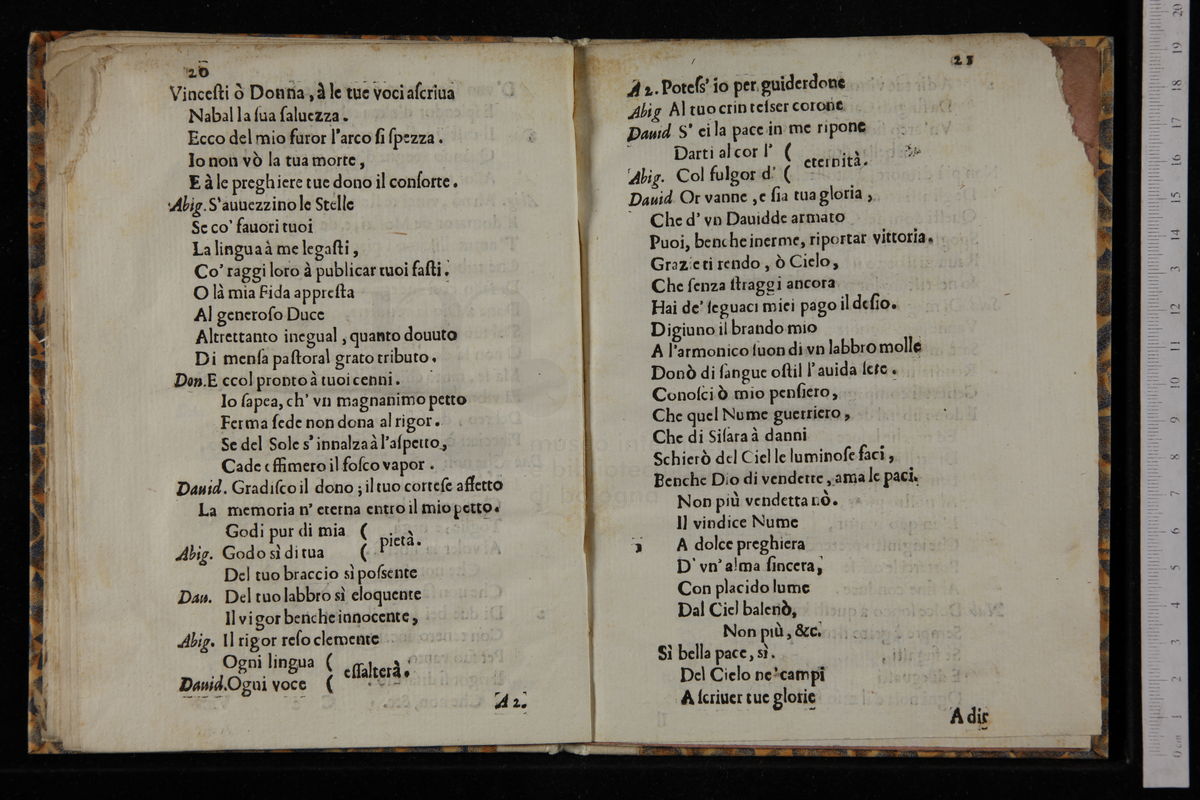 20
Vincesti ò Donna, à le tue voci ascriua
Nabal la sua saluezza.
Ecco del mio furor l'arco si spezza.
Io non vò la tua morte,
E à le preghiere tue dono il consorte.
Abig. S'auuezzino le Stelle
Se co' fauori tuoi
La lingua à me legasti,
Co' raggi loro à publicar tuoi fasti.
O là mia Fida appresta
Al generoso Duce
Altrettanto inegual, quanto douuto
Di mensa pastoral grato tributo.
Don. E ccol pronto à tuoi cenni.
Io sapea, ch' vn magnanimo petto
Ferma sede non dona al rigor.
Se del Sole s' innalza à l'aspetto,
Cade effimero il fosco vapor.
Dauid. Gradisco il dono; il tuo cortese affetto
La memoria n' eterna entro il mio petto.
Godi pur di mia (
pietà.
Abig. Godo sì di tua (
Del tuo braccio sì possente
Dau. Del tuo labbro sì eloquente
Il vigor benche innocente,
Abig. Il rigor reso clemente
Ogni lingua (
essalterà.
Dauid. Ogni voce (
A 2.
21
A 2. Potess' io per guiderdone
Abig Al tuo crin tesser corone
Dauid S' ei la pace in me ripone
Darti al cor l' (
eternità.
Abig. Col fulgor d' (
Dauid Or vanne, e sia tua gloria,
Che d' vn Dauidde armato
Puoi, benche inerme, riportar vittoria.
Grazie ti rendo, ò Cielo,
Che senza straggi ancora
Hai de' seguaci miei pago il desio.
Digiuno il brando mio
A l'armonico suon di vn labbro molle
Donò di sangue ostil l'auida sete.
Conosci ò mio pensiero,
Che quel Nume guerriero,
Che di Sisara à danni
Schierò del Ciel le luminose faci,
Benche Dio di vendette, ama le paci.
Non più vendetta nò.
Il vindice Nume
A dolce preghiera
D' vn' alma sincera,
Con placido lume
Dal Ciel balenò,
Non più, &c.
Sì bella pace, sì.
Del Cielo ne' campi
A scriuer tue glorie
A dir